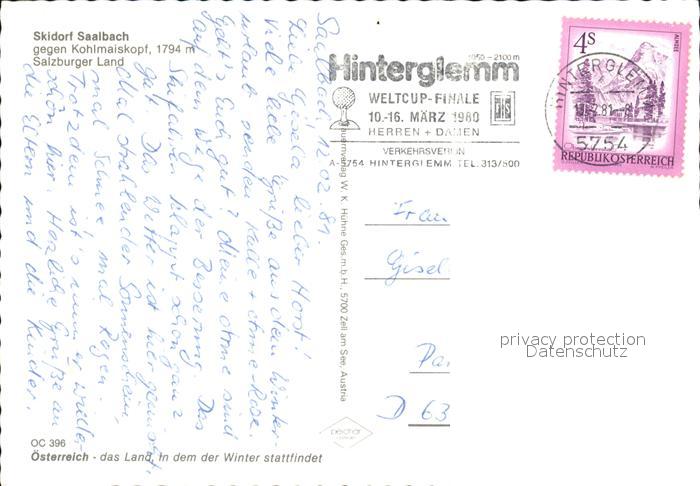 Skidorf Saalbach
gegen Kohlmaiskopf, 1794 m
Salzburger Land
1050 – 2100 m
Hinterglemm
WELTCUP-FINALE
10.-16. MÄRZ 1980
HERREN + DAMEN
VERKEHRSVEREIN
A-5754 HINTERGLEMM TEL. 313/500
4S
ALMSEE
HINTERGLEMM
5754
REPUBLIK ÖSTERREICH
02. 81.
Liebe Gisela, lieber Horst!
Viele liebe Grüße aus dem Winter-
urlaub senden
Geht's Euch gut? Meine Arme sind
auf dem Wege der Besserung. Das
Skifahren klappt schon ganz
gut. Das Wetter ist hier gemischt,
Mal strahlender Sonnenschein,
mal Schnee, mal Regen.
Trotzdem ist's
schön hier. Herzliche Grüße an
die Eltern und die Kinder.
Alpenverlag W. K. Hühne Ges.m.b.H., 5700 Zell am See, Austria
Frau
Gisel
Pa
D 63
privacy protection
Datenschutz
OC 396
Österreich - das Land, in dem der Winter stattfindet